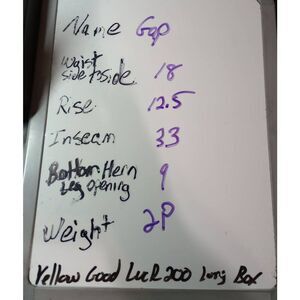 Name Gap
Waist
side to side 18
Rise 12.5
Inseam 33
Bottom Hem
Leg Opening 9
Weight 2P
Yellow Good Luck 200 Long Box